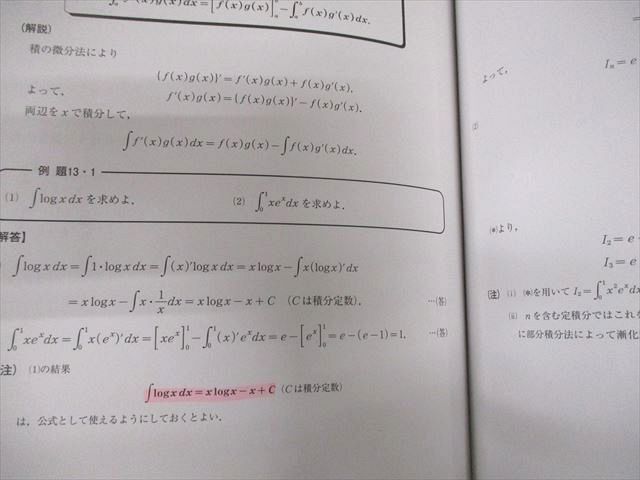 g(x)dx=[f(x)g(x)]-∫f(x)g'(x)dx.
(解説)
積の微分法により
{f(x)g(x)}'=f'(x)g(x)+f(x)g'(x).
よって,
f'(x)g(x)={f(x)g(x)}'-f(x)g'(x).
両辺をxで積分して,
∫f'(x)g(x)dx=f(x)g(x)-∫f(x)g'(x)dx.
例題13・1
(1) ∫logxdxを求めよ. (2) ∫₀¹xeˣdxを求めよ.
解答】
∫logxdx=∫1・logxdx=∫(x)'logxdx=xlogx-∫x(logx)'dx
=xlogx-∫x・1/x dx=xlogx-x+C (Cは積分定数). …(答)
∫₀¹xeˣdx=∫₀¹x(eˣ)'dx=[xeˣ]₀¹-∫₀¹(x)'eˣdx=e-[eˣ]₀¹=e-(e-1)=1. …(答)
注) (1)の結果
∫logxdx=xlogx-x+C (Cは積分定数)
は, 公式として使えるようにしておくとよい.
Iₙ=e
よって,
(2)
(*)より,
I₂=e-
I₃=e
(注) (i) (*)を用いてI₂=∫₀¹x²eˣdx
(ii) nを含む定積分ではこれを
に部分積分法によって漸化